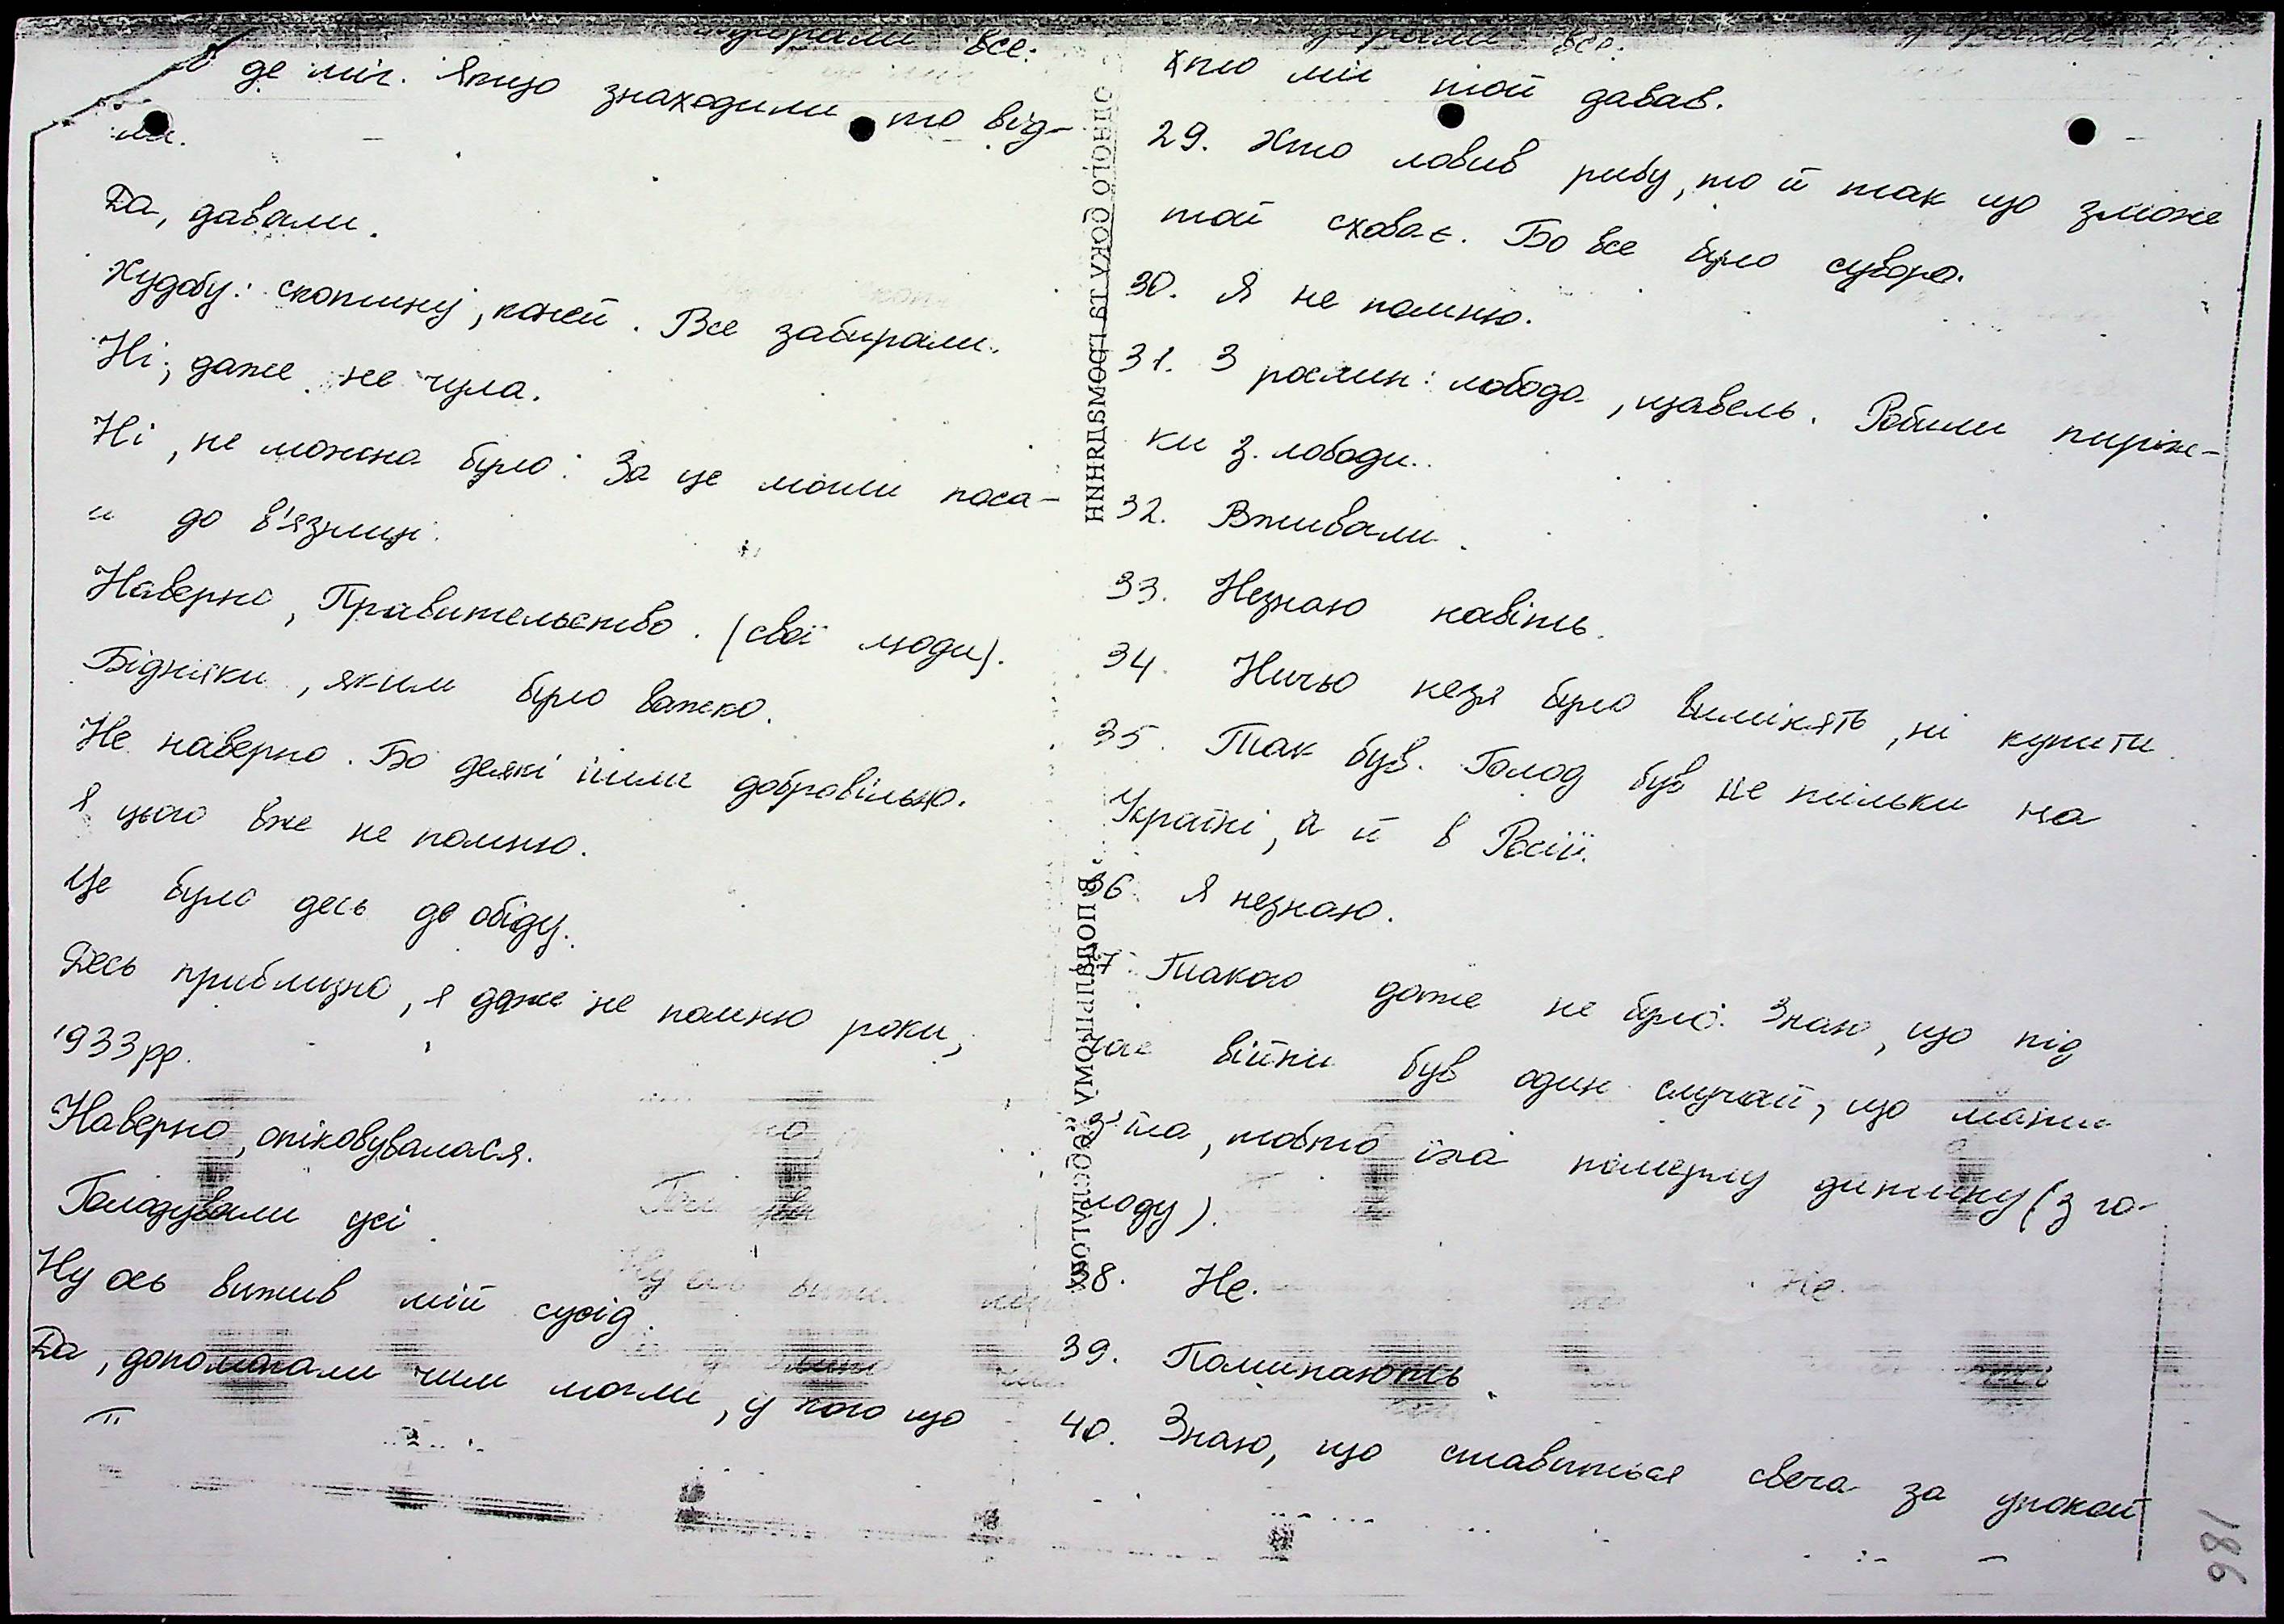 де міг. Якщо знаходили то від-
ли.
Да, давали.
Худобу: скотину, коней. Все забирали.
Ні, даже не чула.
Ні, не можна було. За це могли поса-
и до в'язниці.
Наверно, Правительство. (свої люди).
Бідняки, яким було важко.
Не наверно. Бо деякі йшли добровільно.
Я цього вже не помню.
Це було десь до обіду.
Десь приблизно, я даже не помню роки,
1933 рр.
Наверно, опіковувалася.
Голодували усі.
Ну ось вижив мій сусід.
Да, допомагали чим могли, у кого що
Хто міг той давав.
29. Хто ловив рибу, то й так що зможе
той сховає. Бо все було суворо.
30. Я не помню.
31. З рослин: лобода, щавель. Робили пиріж-
ки з лободи.
32. Вживали.
33. Незнаю навіть.
34. Ничьо незя було вимінять, ні купити.
35. Так був. Голод був не тільки на
Україні, а й в Росії.
36. Я незнаю.
37. Такого даже не було. Знаю, що під
час війни був один случай, що мати
з'їла, тобто їла померлу дитину (з го-
лоду).
38. Не.
39. Поминають.
40. Знаю, що ставиться свеча за упокой
186